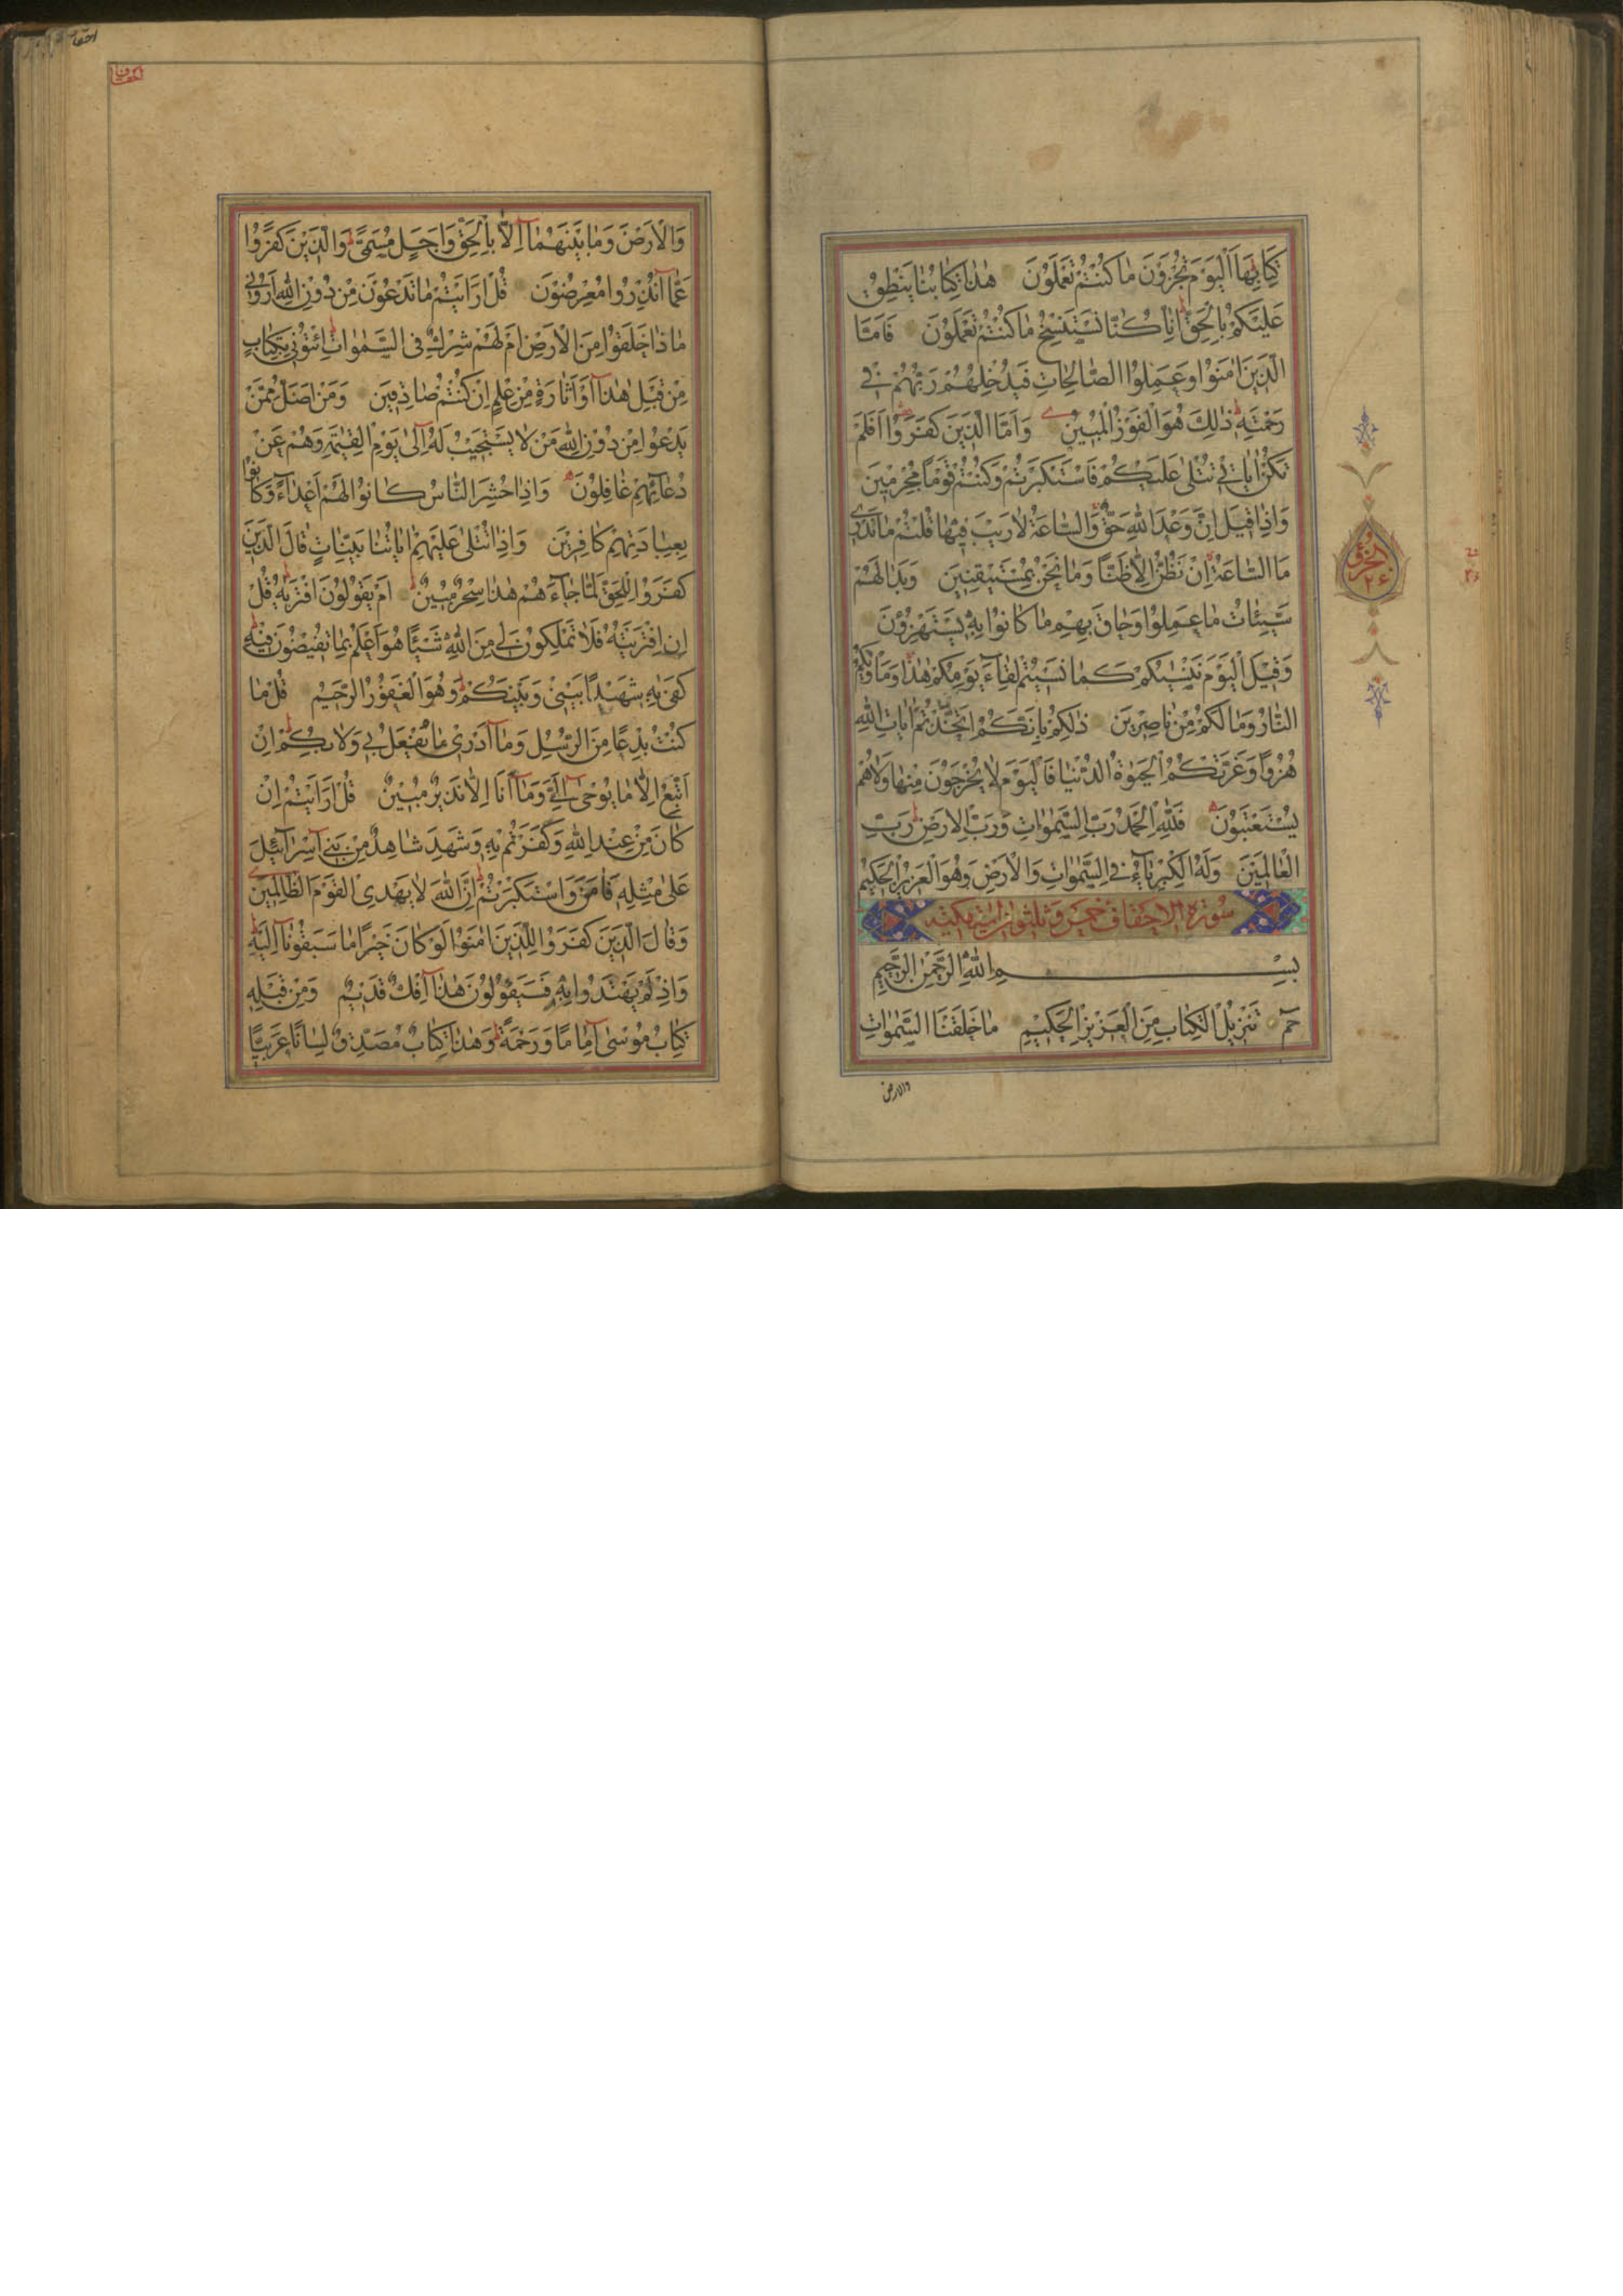 كِتَابِهَا اَلْيَوْمَ تُجْزَوْنَ مَا كُنْتُمْ تَعْمَلُوْنَ هٰذَا كِتَابُنَا يَنْطِقُ
عَلَيْكُمْ بِالْحَقِّ اِنَّا كُنَّا نَسْتَنْسِخُ مَا كُنْتُمْ تَعْمَلُوْنَ فَاَمَّا
الَّذِيْنَ اٰمَنُوْا وَعَمِلُوا الصَّالِحَاتِ فَيُدْخِلُهُمْ رَبُّهُمْ فِيْ
رَحْمَتِهٖ ذٰلِكَ هُوَ الْفَوْزُ الْمُبِيْنُ وَاَمَّا الَّذِيْنَ كَفَرُوْا اَفَلَمْ
تَكُنْ اٰيَاتِيْ تُتْلٰى عَلَيْكُمْ فَاسْتَكْبَرْتُمْ وَكُنْتُمْ قَوْمًا مُجْرِمِيْنَ
وَاِذَا قِيْلَ اِنَّ وَعْدَ اللّٰهِ حَقٌّ وَالسَّاعَةُ لَا رَيْبَ فِيْهَا قُلْتُمْ مَا نَدْرِيْ
مَا السَّاعَةُ اِنْ نَظُنُّ اِلَّا ظَنًّا وَمَا نَحْنُ بِمُسْتَيْقِنِيْنَ وَبَدَا لَهُمْ
سَيِّئَاتُ مَا عَمِلُوْا وَحَاقَ بِهِمْ مَا كَانُوْا بِهٖ يَسْتَهْزِؤُنَ
وَقِيْلَ الْيَوْمَ نَنْسٰيكُمْ كَمَا نَسِيْتُمْ لِقَاءَ يَوْمِكُمْ هٰذَا وَمَأْوٰيكُمُ
النَّارُ وَمَا لَكُمْ مِنْ نَاصِرِيْنَ ذٰلِكُمْ بِاَنَّكُمُ اتَّخَذْتُمْ اٰيَاتِ اللّٰهِ
هُزُوًا وَغَرَّتْكُمُ الْحَيٰوةُ الدُّنْيَا فَالْيَوْمَ لَا يُخْرَجُوْنَ مِنْهَا وَلَا هُمْ
يُسْتَعْتَبُوْنَ فَلِلّٰهِ الْحَمْدُ رَبِّ السَّمٰوَاتِ وَرَبِّ الْاَرْضِ رَبِّ
الْعَالَمِيْنَ وَلَهُ الْكِبْرِيَاءُ فِي السَّمٰوَاتِ وَالْاَرْضِ وَهُوَ الْعَزِيْزُ الْحَكِيْمُ
سورة الاحقاف خمس وثلثون اية مكية
بِسْمِ اللّٰهِ الرَّحْمٰنِ الرَّحِيْمِ
حٰمٓ تَنْزِيْلُ الْكِتَابِ مِنَ اللّٰهِ الْعَزِيْزِ الْحَكِيْمِ مَا خَلَقْنَا السَّمٰوَاتِ
والارض
الجزؤ
٢٦
احقا
الاحقاف
وَالْاَرْضَ وَمَا بَيْنَهُمَا اِلَّا بِالْحَقِّ وَاَجَلٍ مُسَمًّى وَالَّذِيْنَ كَفَرُوْا
عَمَّا اُنْذِرُوا مُعْرِضُوْنَ قُلْ اَرَاَيْتُمْ مَا تَدْعُوْنَ مِنْ دُوْنِ اللّٰهِ اَرُوْنِيْ
مَاذَا خَلَقُوْا مِنَ الْاَرْضِ اَمْ لَهُمْ شِرْكٌ فِي السَّمٰوَاتِ اِئْتُوْنِيْ بِكِتَابٍ
مِنْ قَبْلِ هٰذَا اَوْ اَثَارَةٍ مِنْ عِلْمٍ اِنْ كُنْتُمْ صَادِقِيْنَ وَمَنْ اَضَلُّ مِمَّنْ
يَدْعُوْا مِنْ دُوْنِ اللّٰهِ مَنْ لَا يَسْتَجِيْبُ لَهٗ اِلٰى يَوْمِ الْقِيٰمَةِ وَهُمْ عَنْ
دُعَائِهِمْ غَافِلُوْنَ وَاِذَا حُشِرَ النَّاسُ كَانُوْا لَهُمْ اَعْدَاءً وَكَانُوْا
بِعِبَادَتِهِمْ كَافِرِيْنَ وَاِذَا تُتْلٰى عَلَيْهِمْ اٰيَاتُنَا بَيِّنَاتٍ قَالَ الَّذِيْنَ
كَفَرُوْا لِلْحَقِّ لَمَّا جَاءَهُمْ هٰذَا سِحْرٌ مُبِيْنٌ اَمْ يَقُوْلُوْنَ افْتَرٰيهُ قُلْ
اِنِ افْتَرَيْتُهٗ فَلَا تَمْلِكُوْنَ لِيْ مِنَ اللّٰهِ شَيْئًا هُوَ اَعْلَمُ بِمَا تُفِيْضُوْنَ فِيْهِ
كَفٰى بِهٖ شَهِيْدًا بَيْنِيْ وَبَيْنَكُمْ وَهُوَ الْغَفُوْرُ الرَّحِيْمُ قُلْ مَا
كُنْتُ بِدْعًا مِنَ الرُّسُلِ وَمَا اَدْرِيْ مَا يُفْعَلُ بِيْ وَلَا بِكُمْ اِنْ
اَتَّبِعُ اِلَّا مَا يُوْحٰى اِلَيَّ وَمَا اَنَا اِلَّا نَذِيْرٌ مُبِيْنٌ قُلْ اَرَاَيْتُمْ اِنْ
كَانَ مِنْ عِنْدِ اللّٰهِ وَكَفَرْتُمْ بِهٖ وَشَهِدَ شَاهِدٌ مِنْ بَنِيْ اِسْرَائِيْلَ
عَلٰى مِثْلِهٖ فَاٰمَنَ وَاسْتَكْبَرْتُمْ اِنَّ اللّٰهَ لَا يَهْدِي الْقَوْمَ الظَّالِمِيْنَ
وَقَالَ الَّذِيْنَ كَفَرُوْا لِلَّذِيْنَ اٰمَنُوْا لَوْ كَانَ خَيْرًا مَا سَبَقُوْنَا اِلَيْهِ
وَاِذْ لَمْ يَهْتَدُوا بِهٖ فَسَيَقُوْلُوْنَ هٰذَا اِفْكٌ قَدِيْمٌ وَمِنْ قَبْلِهٖ
كِتَابُ مُوْسٰى اِمَامًا وَرَحْمَةً وَهٰذَا كِتَابٌ مُصَدِّقٌ لِسَانًا عَرَبِيًّا